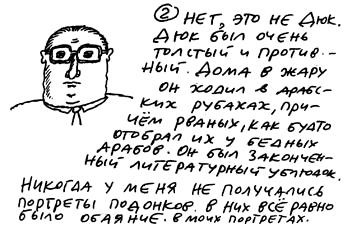 ② НЕТ, ЭТО НЕ ДЮК.
ДЮК БЫЛ ОЧЕНЬ
ТОЛСТЫЙ И ПРОТИВ-
НЫЙ. ДОМА В ЖАРУ
ОН ХОДИЛ В АРАБС-
КИХ РУБАХАХ, ПРИ-
ЧЁМ РВАНЫХ, КАК БУДТО
ОТОБРАЛ ИХ У БЕДНЫХ
АРАБОВ. ОН БЫЛ ЗАКОНЧЕН-
НЫЙ ЛИТЕРАТУРНЫЙ УБЛЮДОК.
НИКОГДА У МЕНЯ НЕ ПОЛУЧАЛИСЬ
ПОРТРЕТЫ ПОДОНКОВ. В НИХ ВСЁ РАВНО
БЫЛО ОБАЯНИЕ. В МОИХ ПОРТРЕТАХ.